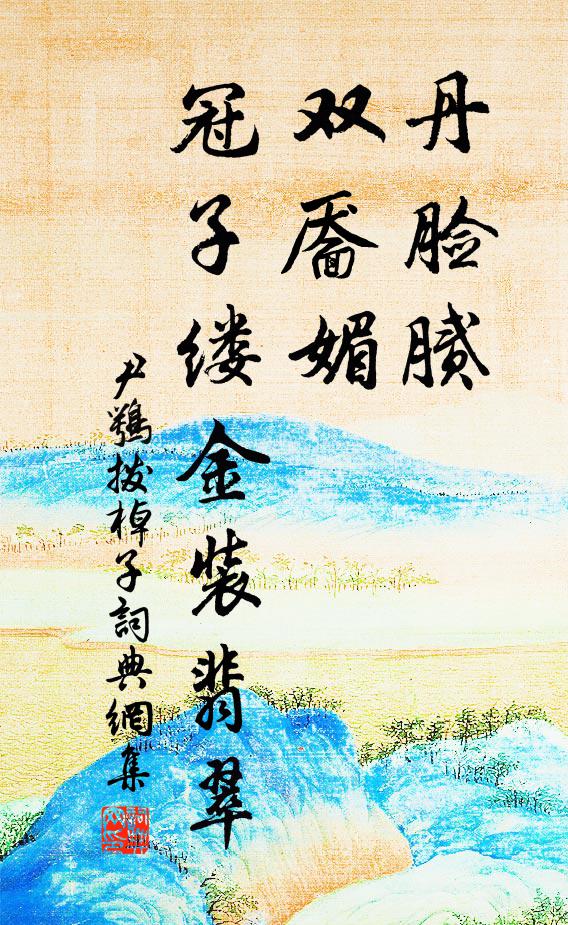 丹脸腻
双靥媚
冠子缕金装翡翠
尹鹗拨棹子詞典網集